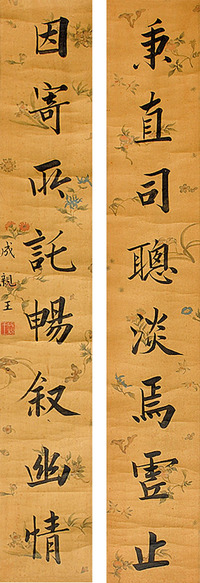 秉直司聰淡焉靈止
因寄所託暢叙幽情
成親王